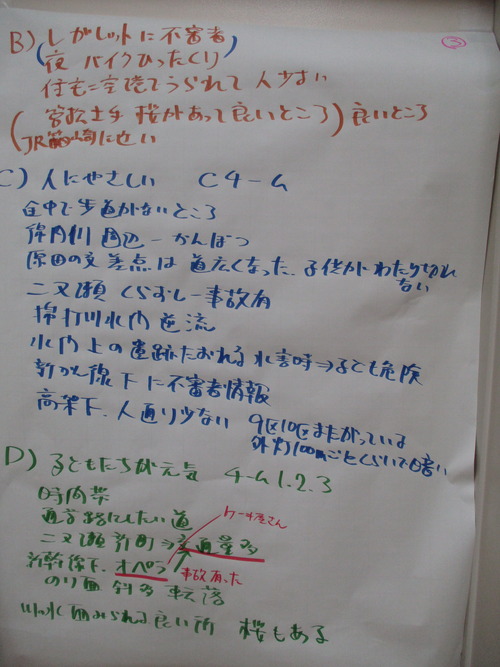 ③
B) レガレットに不審者
(夜 バイクひったくり)
住宅に空陸てうられて人少ない
(宮松土手 桜があって良いところ) 良いところ
JR 箱崎に近い
C) 人にやさしい Cチーム
途中で歩道がないところ
綿打川 周辺ーかんばつ
原田の交差点は 道広くなった 子供がわたり切れ
ない
二又瀬 くらおしー事故有
綿打川水門 逆流
水門上の 遺跡たおれる 水害時→子ども危険
新かん線下に不審者情報
高架下、人通り少ない 9区10区またがっている
外灯100mごとくらいで暗い
D) 子どもたちが元気 チーム1.2.3
時間帯
通学路にしたい道
二又瀬 新町⇒交通量多
ケーキ屋さん
新幹線下. オペラ
事故あった
のり面 斜め 転落
川水面みられる良い所 桜もある